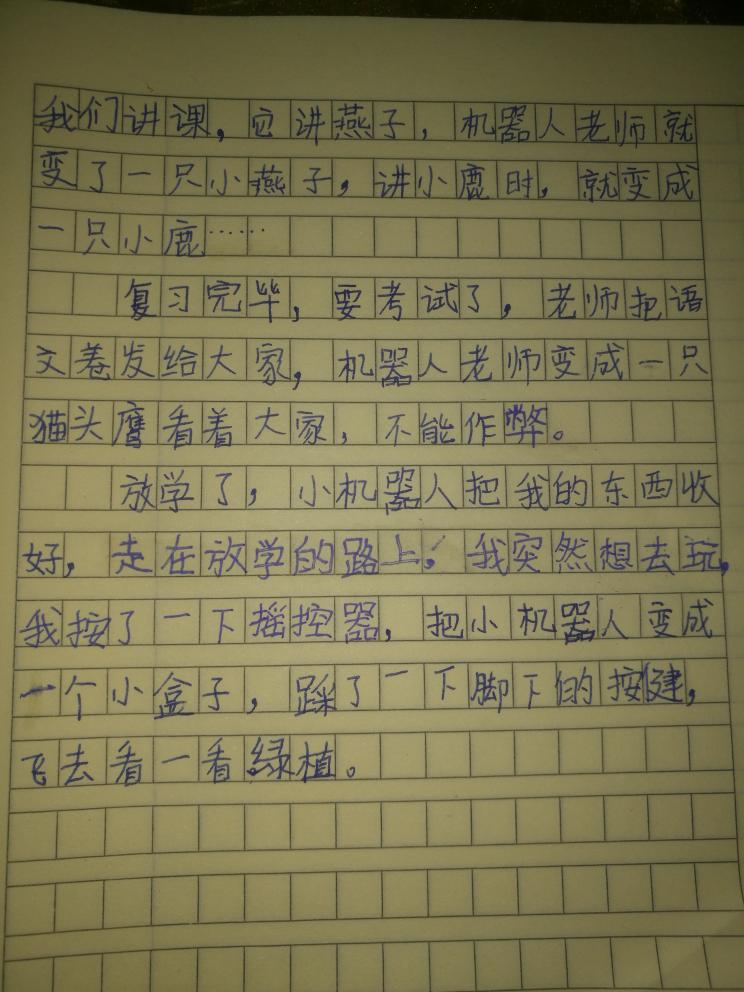 我们讲课，它讲燕子，机器人老师就
变了一只小燕子，讲小鹿时，就变成
一只小鹿……
复习完毕，要考试了，老师把语
文卷发给大家，机器人老师变成一只
猫头鹰看着大家，不能作弊。
放学了，小机器人把我的东西收
好，走在放学的路上，我突然想去玩，
我按了一下摇控器，把小机器人变成
一个小盒子，踩了一下脚下的按健，
飞去看一看绿植。